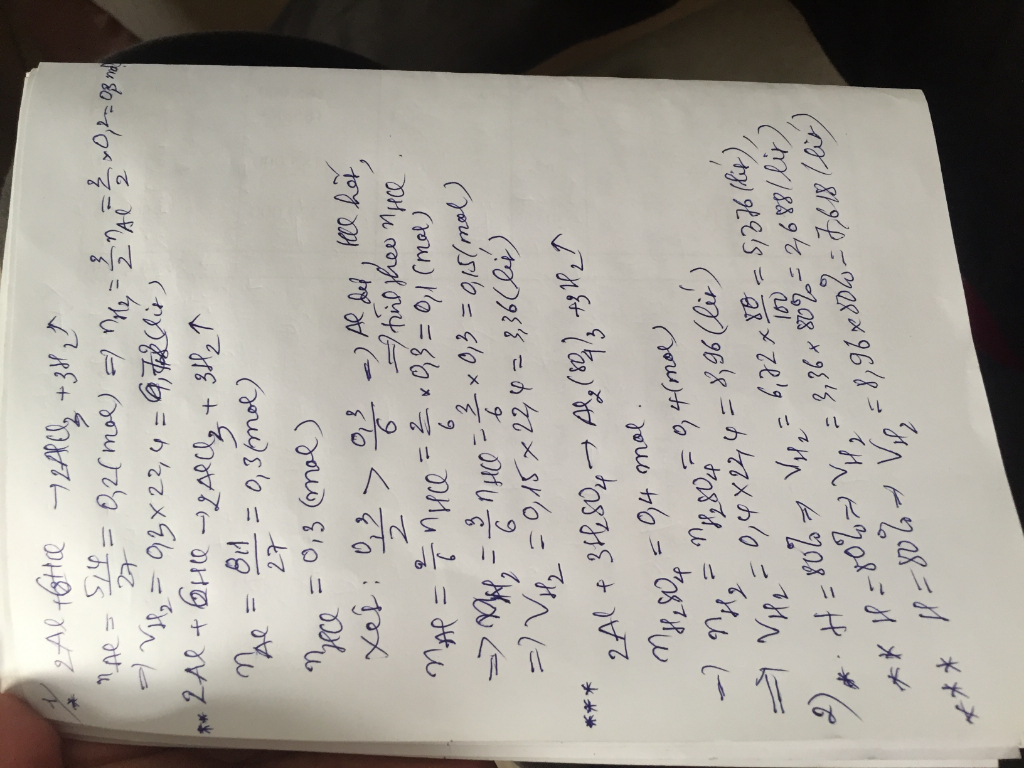 1/
* 2Al + 6HCl → 2AlCl3 + 3H2↑
nAl = 5,4/27 = 0,2 (mol) ⇒ nH2 = 3/2 nAl = 3/2 × 0,2 = 0,3 mol
⇒ VH2 = 0,3 × 22,4 = 6,72 (lit)
** 2Al + 6HCl → 2AlCl3 + 3H2↑
nAl = 8,1/27 = 0,3 (mol)
nHCl = 0,3 (mol)
Xét: 0,3/2 > 0,3/6 ⇒ Al dư HCl hết,
⇒ tính theo nHCl.
nAl = 2/6 nHCl = 2/6 × 0,3 = 0,1 (mol)
⇒ nH2 = 3/6 nHCl = 3/6 × 0,3 = 0,15 (mol)
⇒ VH2 = 0,15 × 22,4 = 3,36 (lit)
*** 2Al + 3H2SO4 → Al2(SO4)3 + 3H2↑
nH2SO4 = 0,4 mol.
→ nH2 = nH2SO4 = 0,4 (mol)
⇒ VH2 = 0,4 × 22,4 = 8,96 (lit)
2) * H = 80% ⇒ VH2 = 6,72 × 80/100 = 5,376 (lit),
** H = 80% ⇒ VH2 = 3,36 × 80% = 2,688 (lit),
*** H = 80% ⇒ VH2 = 8,96 × 80% = 7,618 (lit)